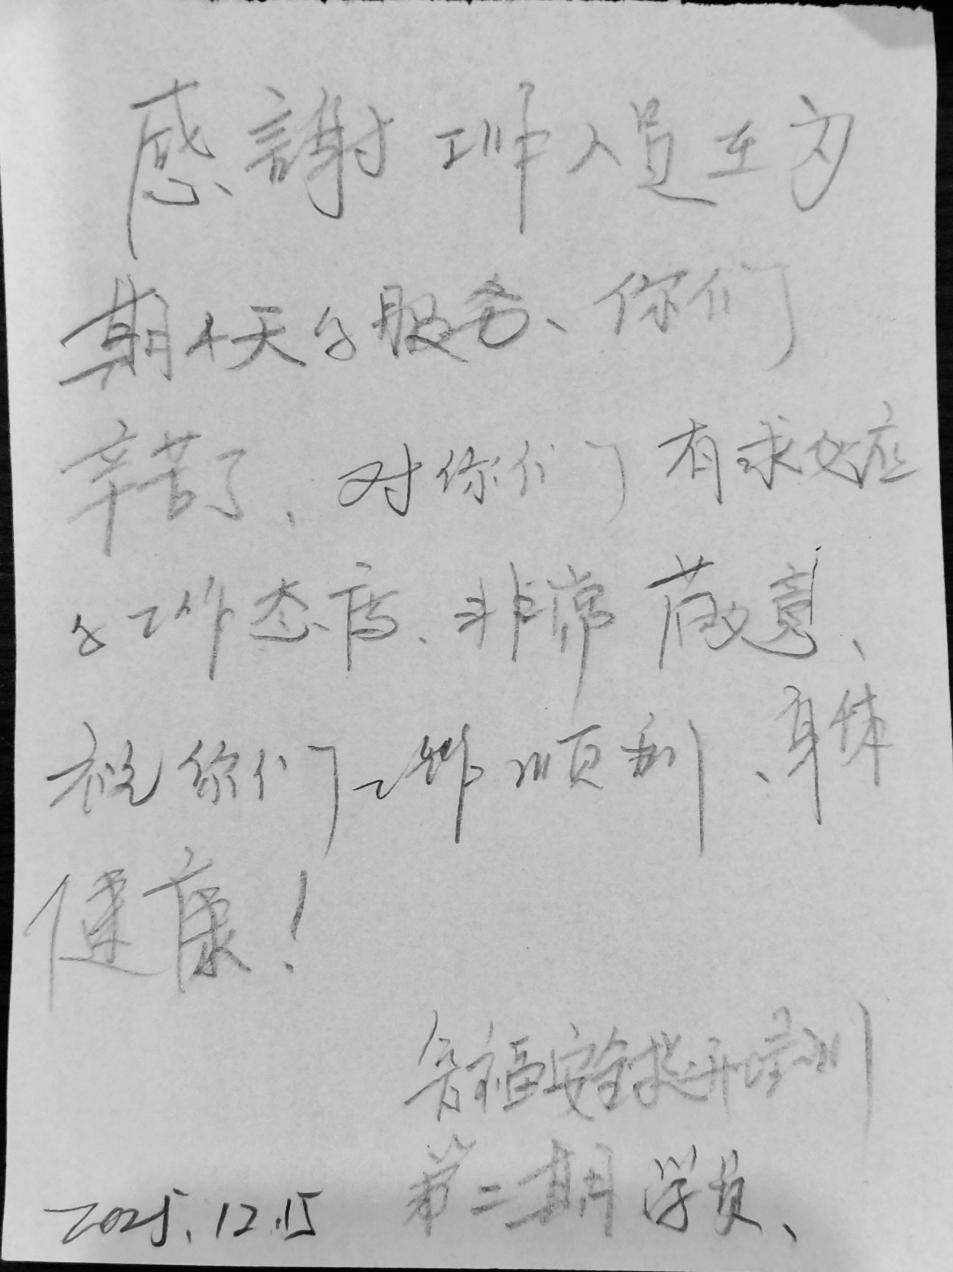 感謝工作人员在为
期4天的服务、你们
辛苦了、对你们有求必应
的工作态度、非常满意、
祝你们工作顺利、身体
健康！
福安全提升培训
第二期学员、
2025.12.15